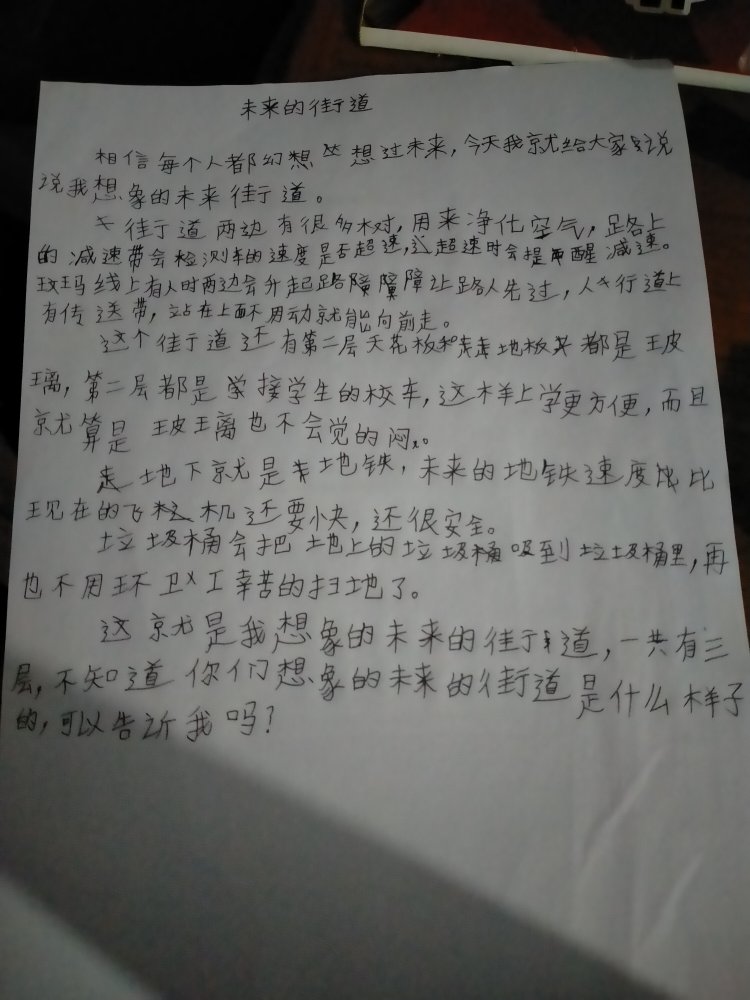 未来的街道
相信每个人都幻想想过未来,今天我就给大家说
说我想象的未来街道。
街道两边有很多树,用来净化空气,路上
的减速带会检测车的速度是否超速,超速时会提醒减速。
斑马线上有人时两边会升起路障让路人先过,人行道上
有传送带,站在上面不用动就能向前走。
这个街道还有第二层天花板和地板都是玻
璃,第二层都是接学生的校车,这样上学更方便,而且
就算是玻璃也不会觉的闷。
地下就是地铁,未来的地铁速度比
现在的飞机还要快,还很安全。
垃圾桶会把地上的垃圾桶吸到垃圾桶里,再
也不用环卫工辛苦的扫地了。
这就是我想象的未来的街道,一共有三
层,不知道你们想象的未来的街道是什么样子
的,可以告诉我吗?